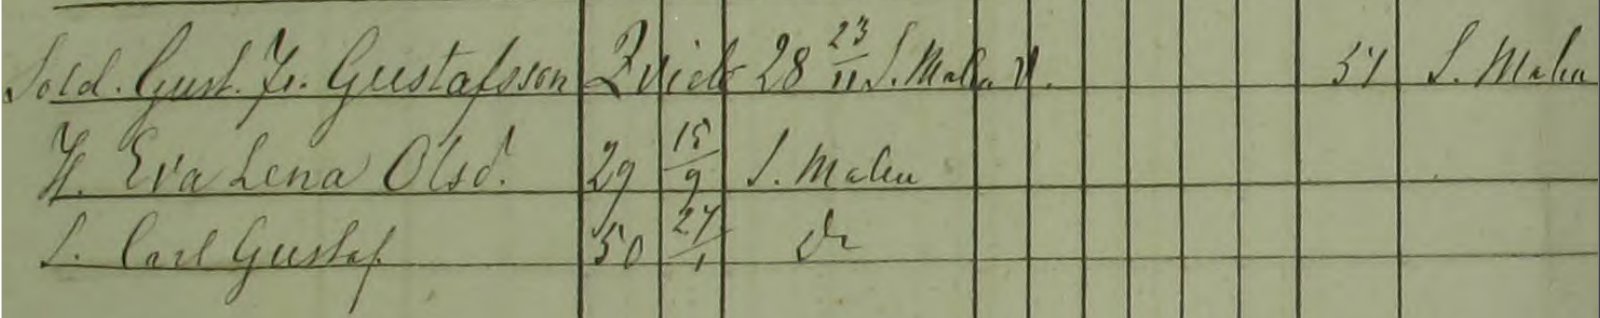 Sold. Gust. Fr. Gustafsson Qvick 28 23/11 S. Malm v. 51 S. Malm
H. Eva Lena Olsd. 29 15/9 S. Malm
S. Carl Gustaf 50 27/1 do